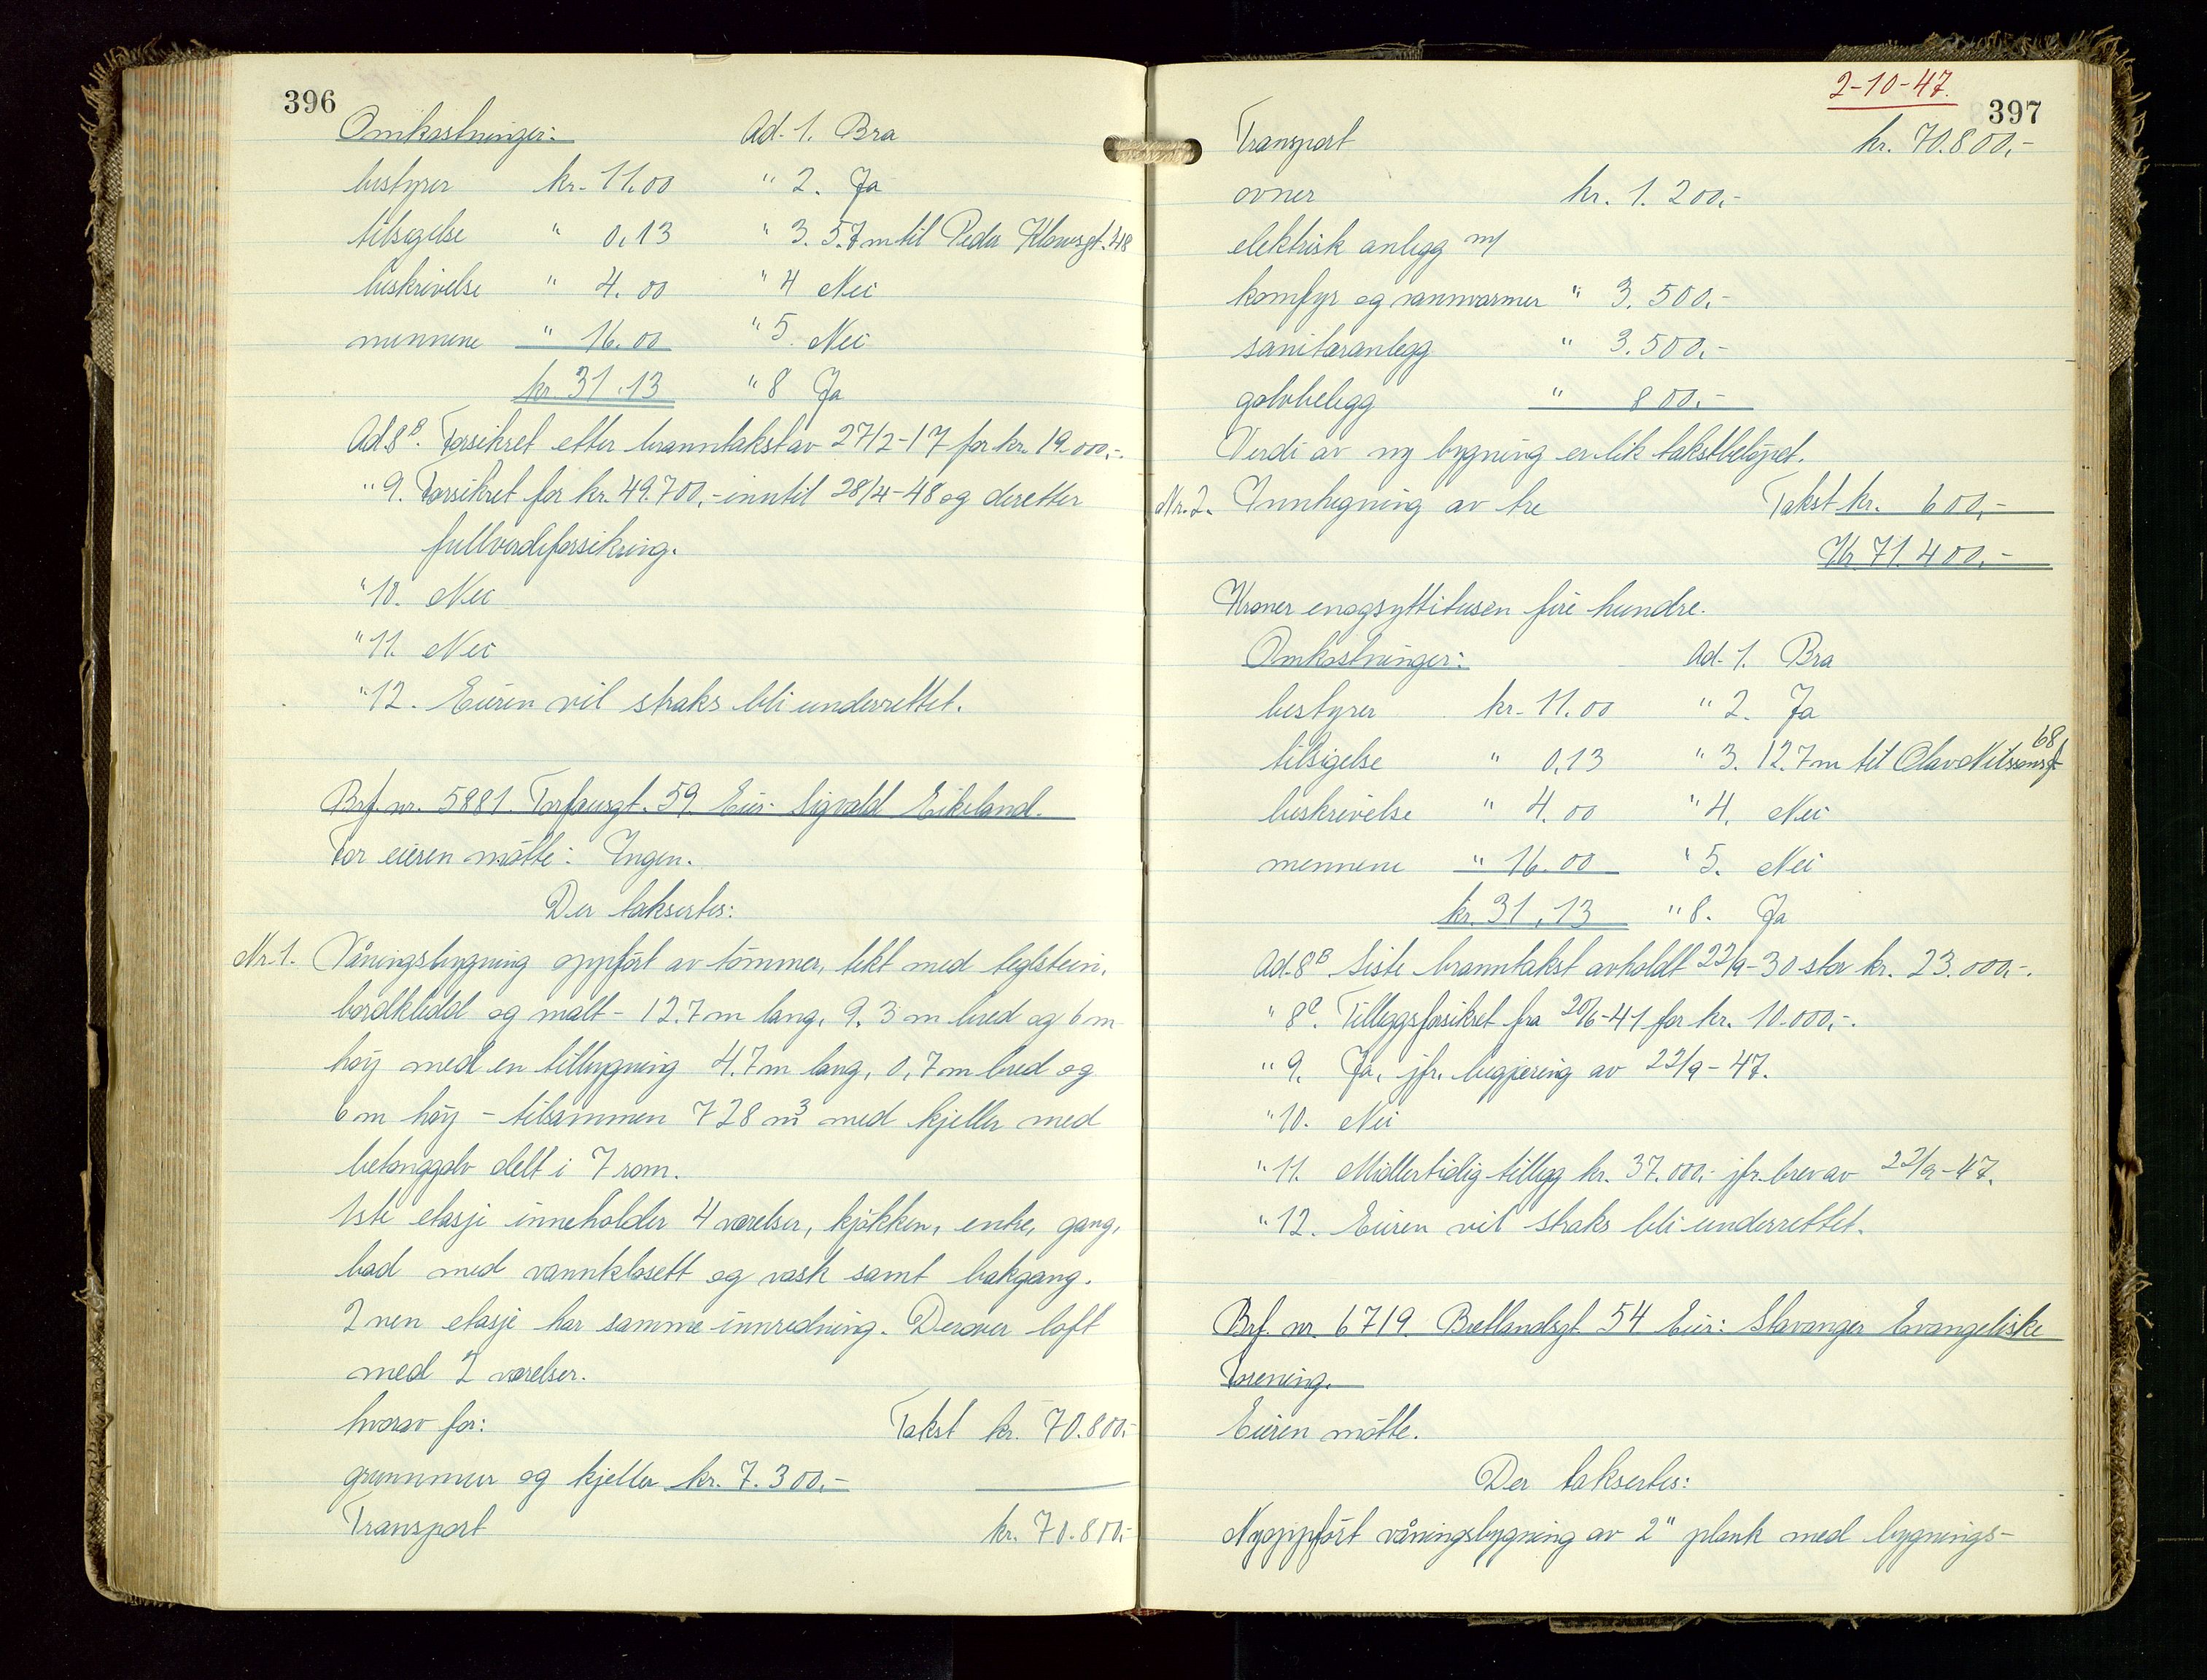 396
Omkostninger: Ad. 1. Bra
bestyrer kr. 11.00 " 2. Ja
tilsigelse " 0,13 " 3. 5.7 m til Peder Klowsgt. 48
beskrivelse " 4.00 " 4 Nei
mennene " 16.00 " 5. Nei
kr. 31.13 " 8 Ja
Ad. 8B. Forsikret etter branntakst av 27/2-17 for kr. 19.000,-.
" 9. Forsikret for kr. 49.700,- inntil 28/4-48 og deretter
fullverdiforsikring.
" 10. Nei
" 11. Nei
" 12. Eieren vil straks bli underrettet.
Brf. nr. 5881. Torfæusgt. 59. Eier: Sigvald Eikeland.
For eieren møtte: Ingen.
Der taksertes:
Nr. 1. Våningsbygning oppført av tømmer, tekt med teglstein,
bordkledd og malt - 12.7 m lang, 9.3 m bred og 6 m
høy med en tilbygning 4.7 m lang, 0,7 m bred og
6 m høy - tilsammen 728 m3 med kjeller med
betonggolv delt i 7 rom.
1ste etasje inneholder 4 værelser, kjøkken, entre, gang,
bad med vannklosett og vask samt bakgang.
2nen etasje har samme innredning. Derover loft
med 2 værelser.
hvorav for: Takst kr. 70.800,-
grunnmur og kjeller kr. 7.300,-
Transport kr. 70.800,-
2-10-47.
397
Transport kr. 70.800,-
ovner kr. 1.200,-
elektrisk anlegg m/
komfyr og vannvarmer " 3.500,-
sanitæranlegg " 3.500,-
golvbelegg " 800,-
Verdi av ny bygning er lik takstbeløpet.
Nr. 2. Innhegning av tre Takst kr. 600,-
Kr. 71.400,-
Kroner enogsyttitusen fire hundre.
Omkostninger: Ad. 1. Bra
bestyrer kr. 11.00 " 2. Ja
tilsigelse " 0,13 " 3. 12.7 m til Olav Nilssonsgt 68
beskrivelse " 4.00 " 4. Nei
mennene " 16.00 " 5. Nei
kr. 31.13 " 8. Ja
Ad. 8B. Siste branntakst avholdt 22/9-30 stor kr. 23.000,-.
" 8C. Tilleggsforsikret fra 20/6-41 for kr. 10.000,-.
" 9. Ja, jfr. begjæring av 22/9-47.
" 10. Nei
" 11. Midlertidig tillegg kr. 37.000,- jfr. brev av 22/9-47.
" 12. Eieren vil straks bli underrettet.
Brf. nr. 6719. Bretlandsgt. 54 Eier: Stavanger Evangeliske
Forening.
Eieren møtte.
Der taksertes:
Nyoppført våningsbygning av 2" plank med bygnings-